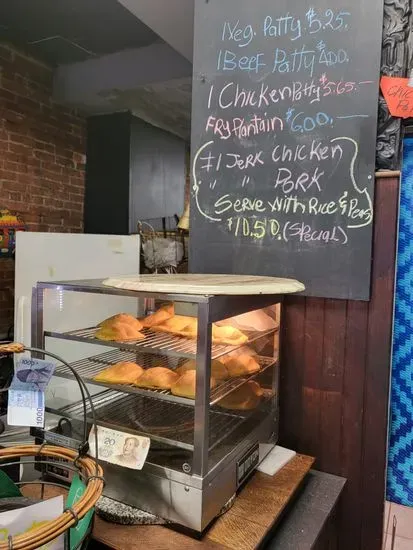 1 Veg. Patty $5.25
1 Beef Patty $4.00.
1 Chicken Patty $5.65.—
Fry Plantain $6.00.—
#1 Jerk Chicken
" " Pork
Serve with Rice & Peas
$10.50. (Special)
20
1000